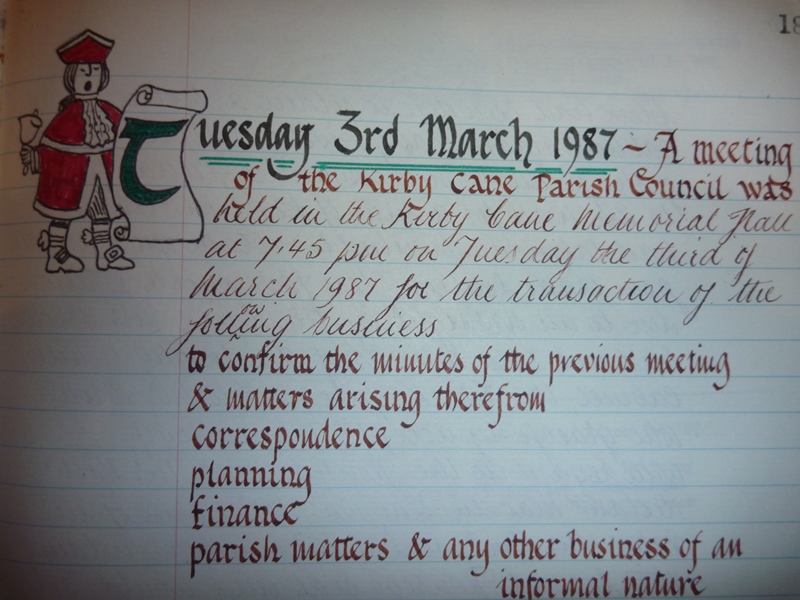 18
Tuesday 3rd March 1987 ~ A meeting
of the Kirby Cane Parish Council was
held in the Kirby Cane Memorial Hall
at 7.45 pm on Tuesday the third of
March 1987 for the transaction of the
following business
to confirm the minutes of the previous meeting
& matters arising therefrom
correspondence
planning
finance
parish matters & any other business of an
informal nature